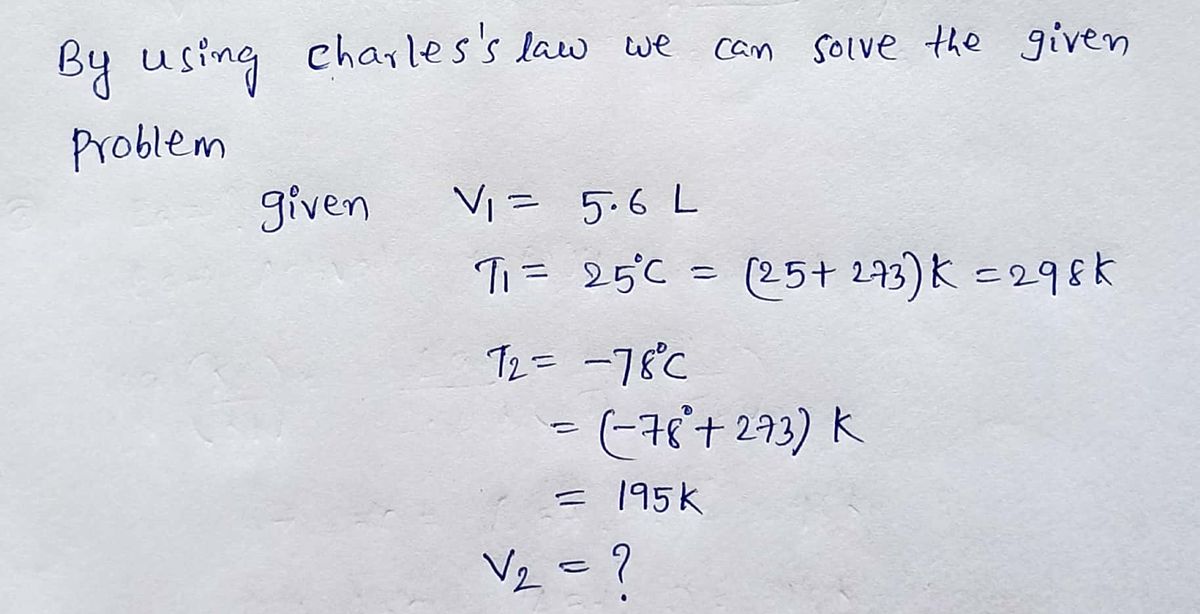 By using Charles's law we can solve the given
Problem
given V₁ = 5.6 L
T₁ = 25°C = (25+ 273)K = 298K
T₂ = -78°C
= (-78°+ 273) K
= 195K
V₂ = ?